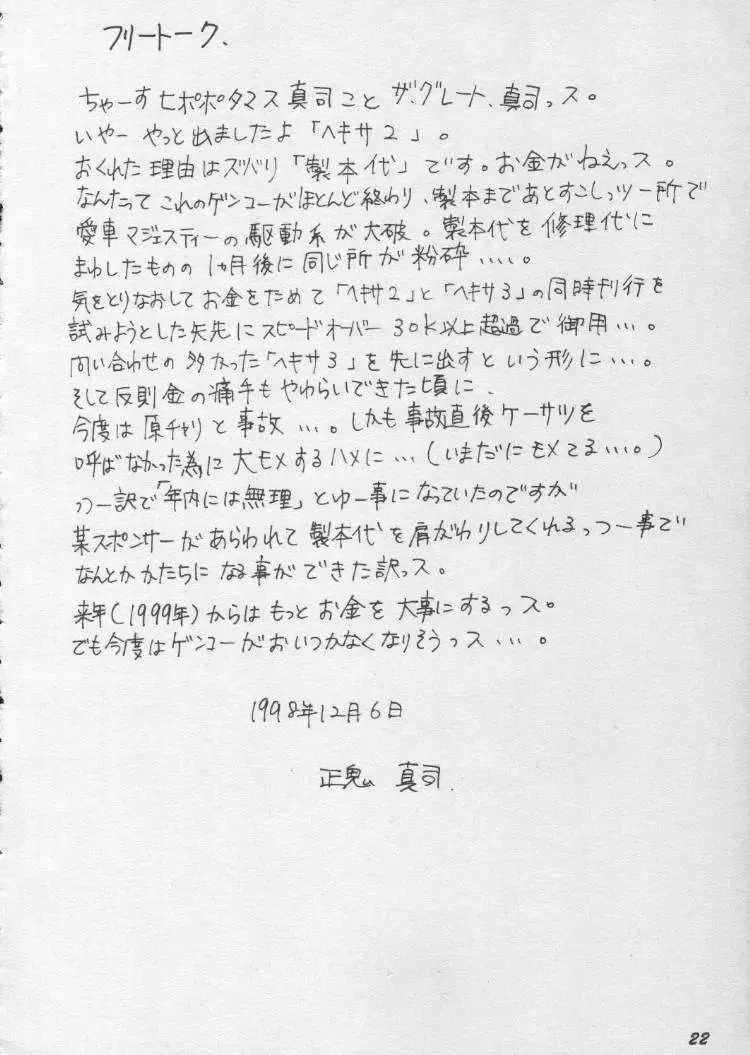 フリートーク、
ちゃーす ヒポポタマス真司こと ザ・グレート、真司っス。
いやー やっと出ましたよ「ヘキサ2」。
おくれた理由はズバリ「製本代」です。お金がねえっス。
なんたって これのゲンコーがほとんど終わり、製本まであとすこしっツー所で
愛車マジェスティーの駆動系が大破。製本代を修理代に
まわしたものの 1ヵ月後に同じ所が粉砕……。
気をとりなおしてお金をためて「ヘキサ2」と「ヘキサ3」の同時刊行を
試みようとした矢先にスピードオーバー 30k以上超過で御用…。
問い合わせの多かった「ヘキサ3」を先に出すという形に…。
そして反則金の痛手もやわらいできた頃に、
今度は原チャリと事故…。しかも事故直後ケーサツを
呼ばなかった為に大モメするハメに…(いまだにモメてる…。)
っつー訳で「年内には無理」とゆー事になっていたのですが
某スポンサーがあらわれて製本代を肩がわりしてくれるっつー事で
なんとかかたちになる事ができた訳っス。
来年(1999年)からはもっとお金を大事にするっス。
でも今度はゲンコーがおいつかなくなりそうっス…。
1998年12月6日
正鬼 真司.
22